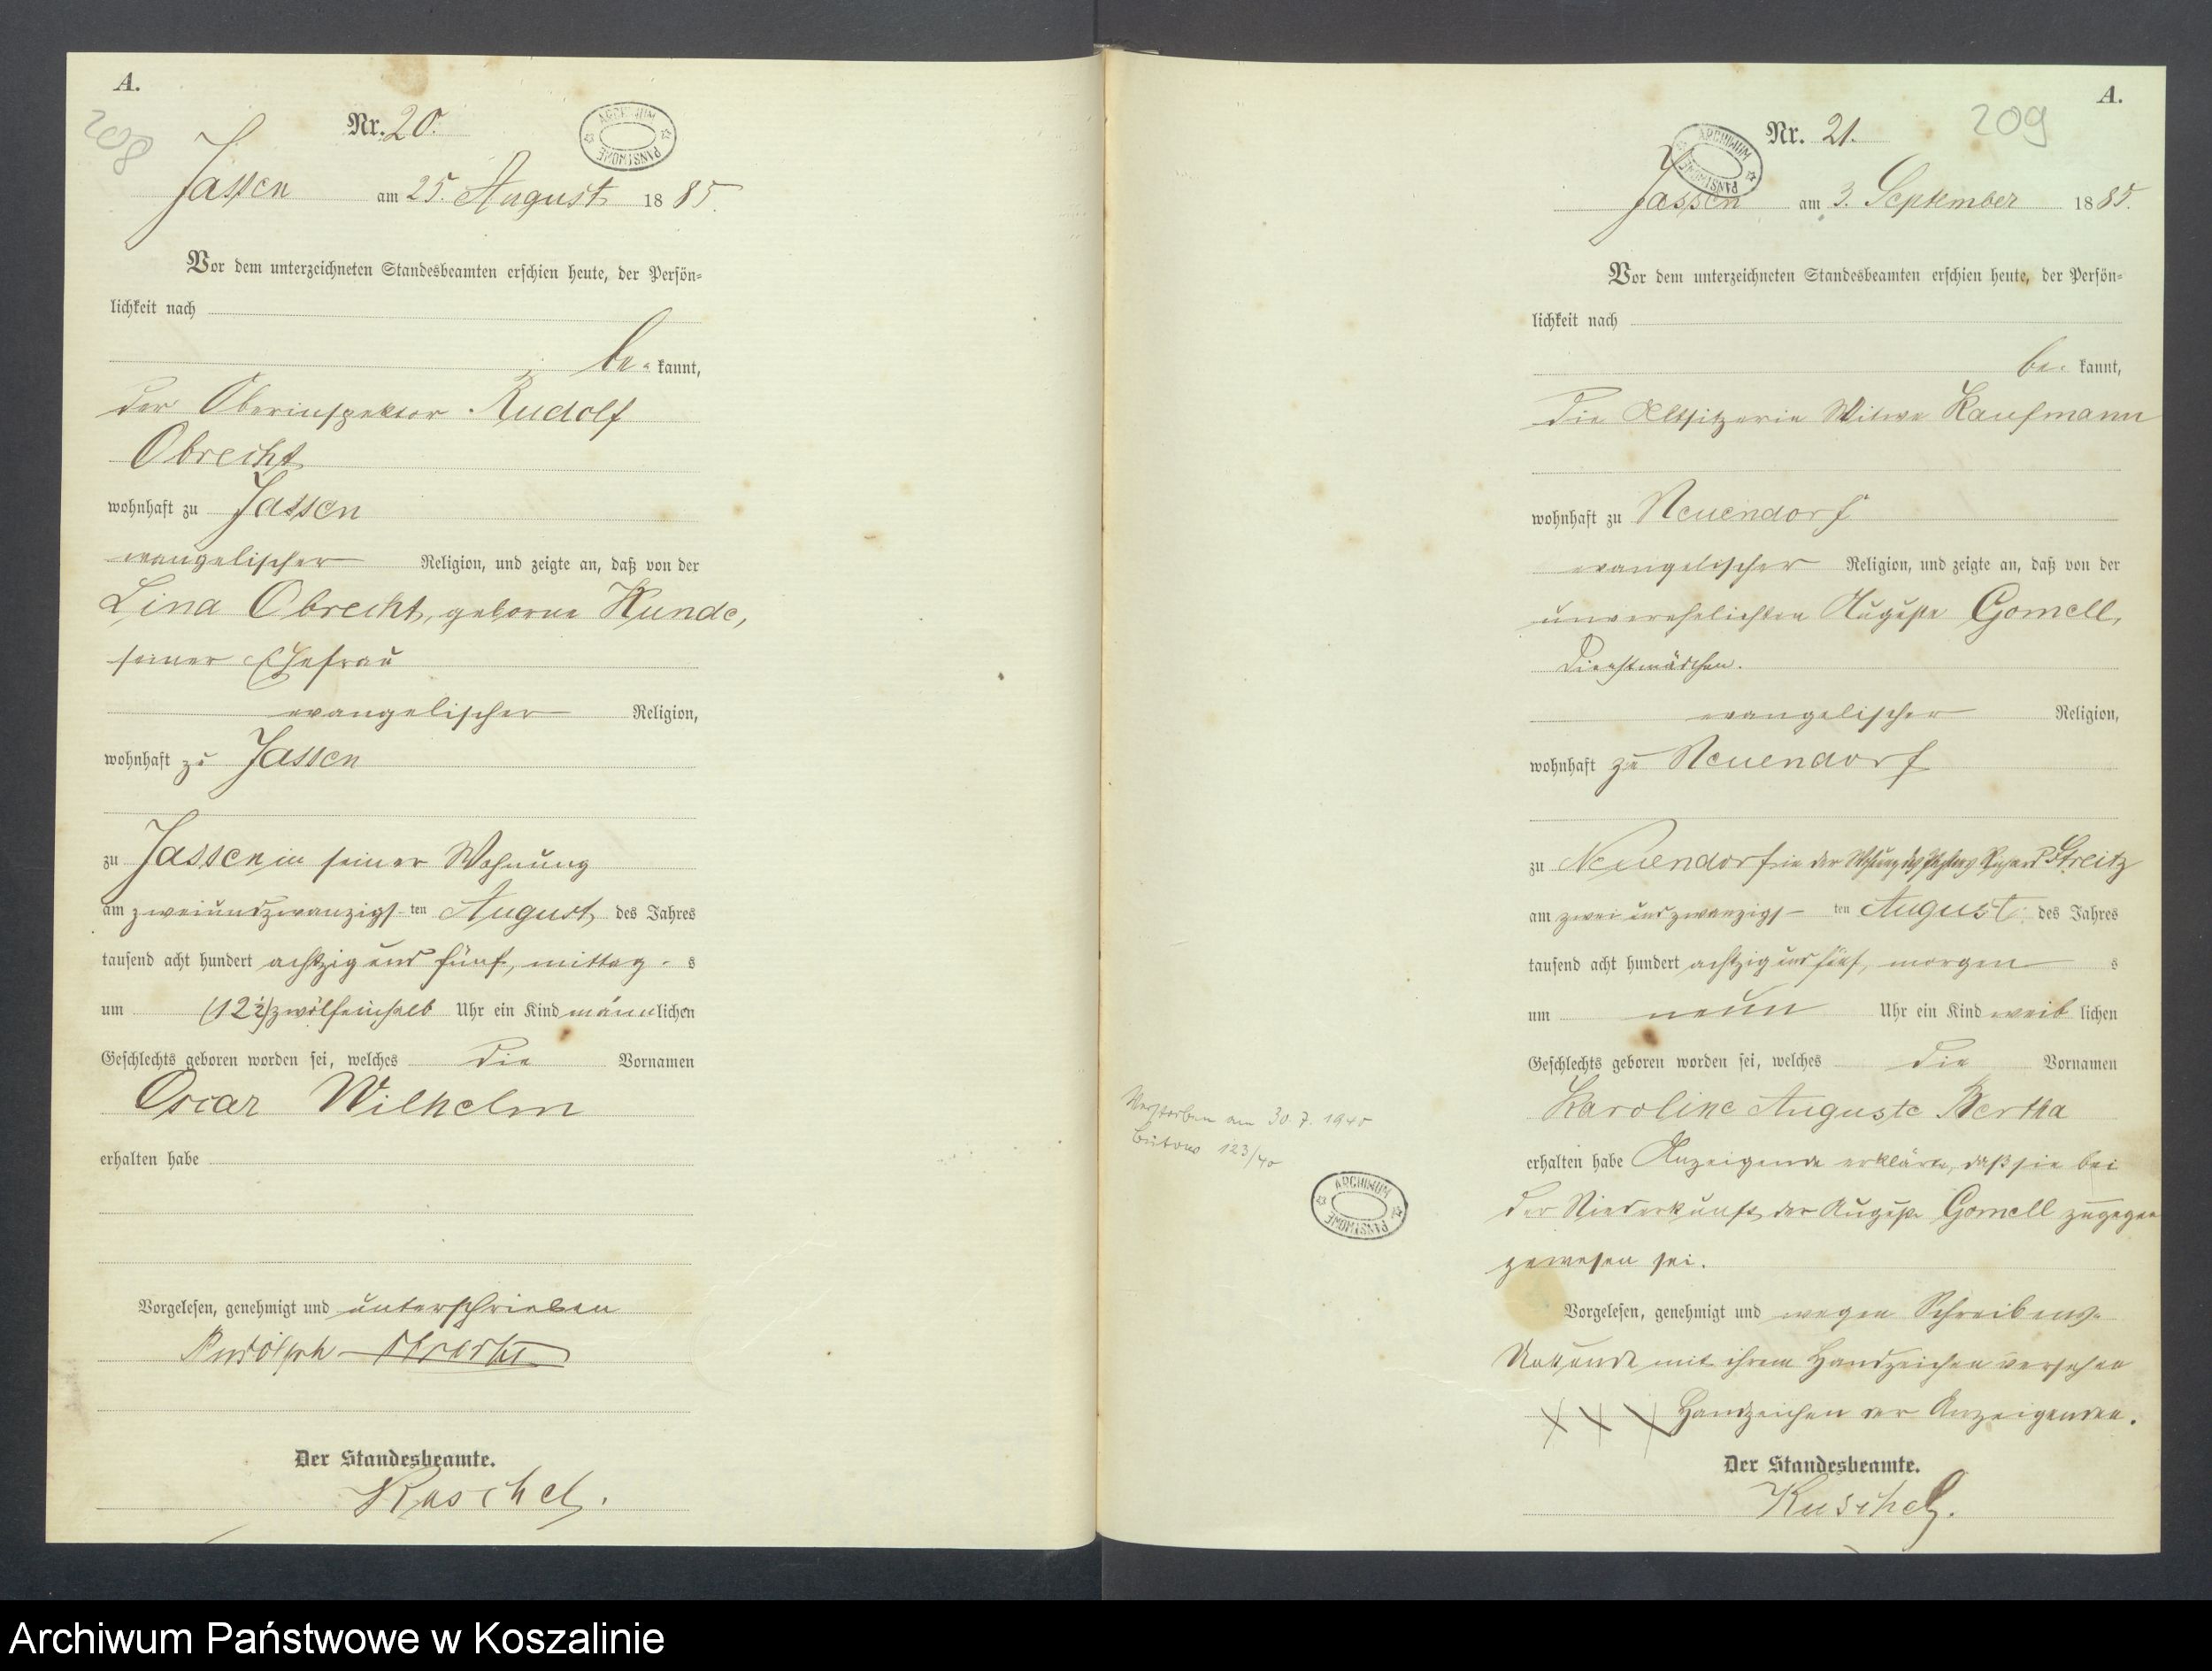 A.
208
Nr. 20.
ARCHIWUM PAŃSTWOWE
Jassen am 25. August 1885.
Vor dem unterzeichneten Standesbeamten erschien heute, der Persön-
lichkeit nach
be- kannt,
der Oberinspektor Rudolf
Obrecht
wohnhaft zu Jassen
evangelischer Religion, und zeigte an, daß von der
Lina Obrecht, geborne Kunde,
seiner Ehefrau
evangelischer Religion,
wohnhaft zu Jassen
zu Jassen in seiner Wohnung
am zweiundzwanzigs- ten August des Jahres
tausend acht hundert achtzig und fünf, mittag- s
um (12½) zwölfeinhalb Uhr ein Kind männlichen
Geschlechts geboren worden sei, welches die Vornamen
Oscar Wilhelm
erhalten habe
Vorgelesen, genehmigt und unterschrieben
Rudolph Obrecht
Der Standesbeamte.
Kuschel.
A.
209
Nr. 21.
ARCHIWUM PAŃSTWOWE
Jassen am 3. September 1885.
Vor dem unterzeichneten Standesbeamten erschien heute, der Persön-
lichkeit nach
be- kannt,
die Altsitzerin Witwe Kaufmann
wohnhaft zu Neuendorf
evangelischer Religion, und zeigte an, daß von der
unverehelichten Auguste Gomell,
Dienstmädchen.
evangelischer Religion,
wohnhaft zu Neuendorf
zu Neuendorf in der Wohnung des Richard Streitz
am zwei und zwanzigs- ten August des Jahres
tausend acht hundert achtzig und fünf, morgen s
um neun Uhr ein Kind weib lichen
Geschlechts geboren worden sei, welches die Vornamen
Karoline Auguste Bertha
erhalten habe Anzeigende erklärte, daß sie bei
der Niederkunft der Auguste Gomell zugegen
gewesen sei.
Vorgelesen, genehmigt und wegen Schreibens-
Unkunde mit ihrem Handzeichen versehen
XXX Handzeichen der Anzeigenden.
Der Standesbeamte.
Kuschel.
Verstorben am 30.7.1940
Bütow 123/40
ARCHIWUM PAŃSTWOWE
Archiwum Państwowe w Koszalinie